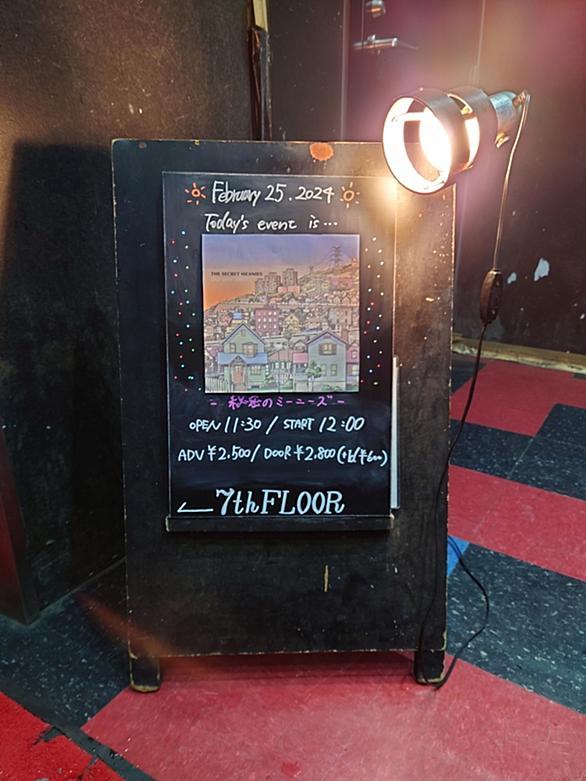 February 25. 2024
Today's event is...
THE SECRET MEANIES
- 秘密のミーニーズ -
OPEN 11:30 / START 12:00
ADV ¥2,500 / DOOR ¥2,800 (+1d ¥600)
7th FLOOR